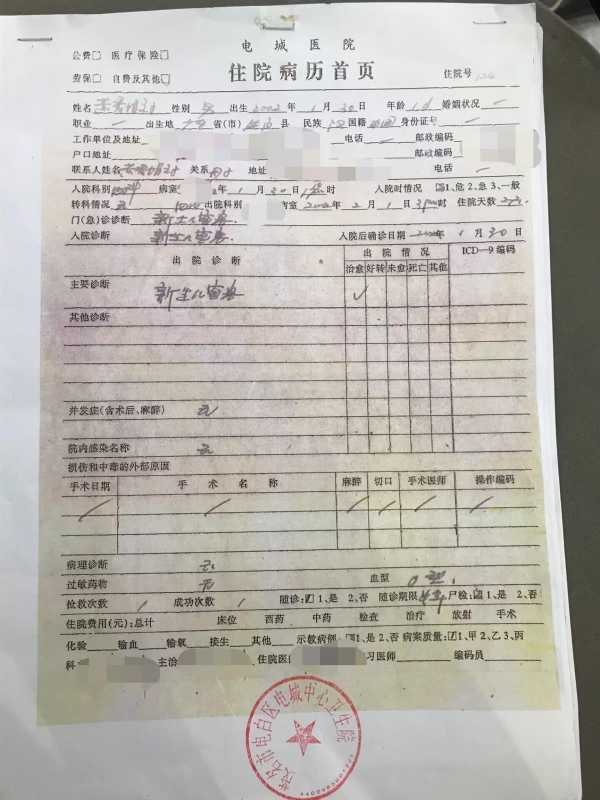 电城医院
公费□ 医疗保险□
住院病历首页
劳保□ 自费及其他□
住院号
姓名 性别 出生2002年1月30日 年龄1d 婚姻状况 一
职业 一 出生地 省(市) 县 民族 汉 国籍 中国 身份证号 一
工作单位及地址 电话 一 邮政编码
户口地址 邮政编码
联系人姓名 关系 地址 电话 一
入院科别 病室 年1月30日 时 入院时情况 1、危2、急3、一般
转科情况 无 出院科别 病室2002年2月1日3pm时 住院天数
门(急)诊诊断 新生儿窒息.
入院诊断 新生儿窒息. 入院后确诊日期 年1月30日
出院诊断 出院情况 ICD—9编码
治愈 好转 未愈 死亡 其他
主要诊断 新生儿窒息 ✓
其他诊断
并发症(含术后、麻醉) 无
院内感染名称 无
损伤和中毒的外部原因
手术日期 手术名称 麻醉 切口 手术医师 操作编码
病理诊断 无
过敏药物 无 血型 O型.
抢救次数 1 成功次数 1 随诊:☑1、是 2、否 随诊期限 半年 尸检: 1、是 2、否
住院费用(元):总计 床位 西药 中药 检查 治疗 放射 手术
化验 输血 输氧 接生 其他 示教病例: 1、是 2、否 病案质量:☑1、甲2、乙3、丙
科 主治 住院医 习医师 编码员
茂名市电白区电城中心卫生院